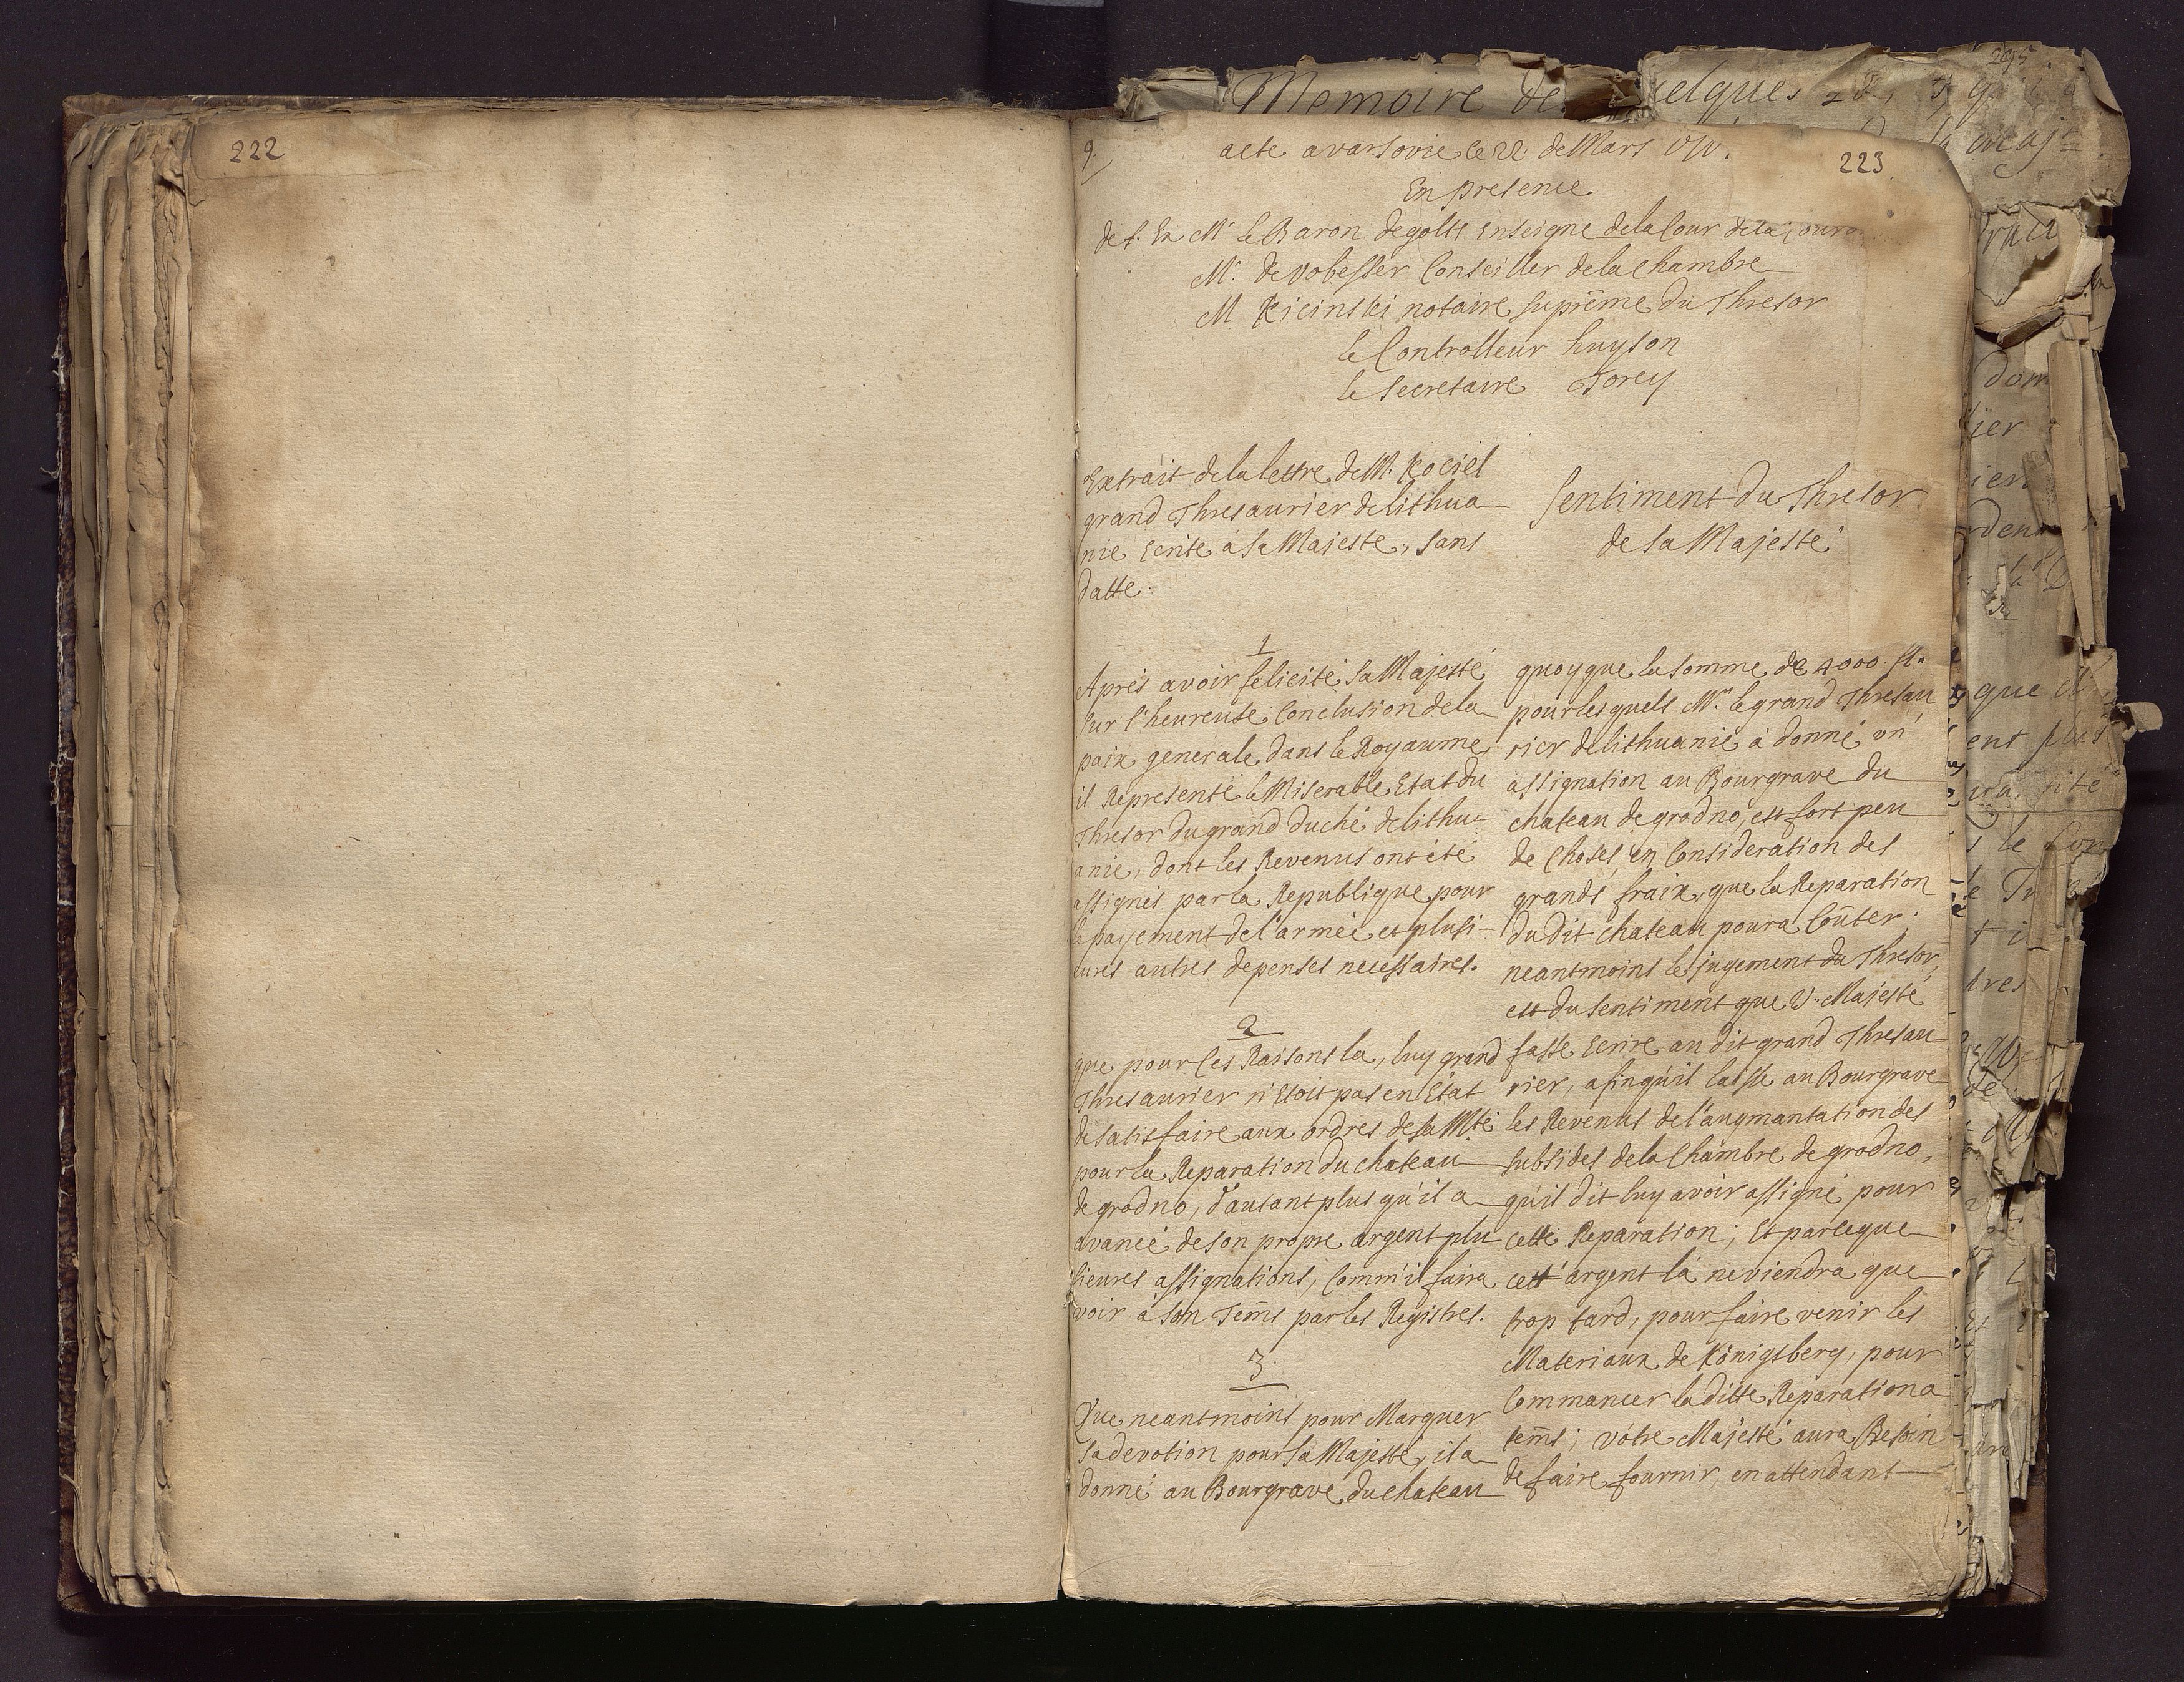 222
9.
acte a varsovie le 22. de Mars
223.
En presence
de s. Ex Mr le Baron de golts Enseigne de la Cour de la
Mr. de vobesser Conseiller de la Chambre
M Kicinski notaire suprême du Thresor
le Controlleur huyson
le Secretaire Torey
Extrait de la lettre de Mr. Kociel
grand Thresaurier de lithua
nie Ecrite a Sa Majeste, sans
datte.
Sentiment du Thresor
de Sa Majesté
1
Aprés avoir felicité Sa Majesté
sur l'heureuse Conclusion de la
paix generale dans le Royaume,
il Represente le Miserable Etat du
Thresor du grand duché de lithu-
anie, dont les Revenus ont été
assignés par la Republique pour
le payement de l'armée et plusi-
eures autres depenses necessaires.
2
que pour ces Raisons la, luy grand
Thresaurier n'Etoit pas en Etat
de satisfaire aux ordres de sa Mté
pour la Reparation du chateau
de grodno, d'autant plus qu'il a
avancé de son propre argent plu
sieures assignations, Comm'il faira
voir à son Tems par les Registres.
3.
Que neantmoins pour Marquer
sa devotion pour Sa Majesté, il a
donné au Bourgrave du chateau
quoyque la somme de 4000. fl.
pour les quels Mr. le grand Thresau
rier de lithuanie à donné un
assignation au Bourgrave du
chateau de grodno, est fort peu
de Choses, en Consideration des
grands fraix, que la Reparation
du dit chateau poura Coûter.
neantmoins le jugement du Thresor,
est du sentiment que V. Majesté
fasse Ecrire au dit grand Thresau
rier, afinqu'il laisse au Bourgrave
les Revenus de l'augmantation des
subsides de la Chambre de grodno,
qu'il dit luy avoir assigné pour
cette Reparation; Et parceque
cett' argent là ne viendra que
trop tard, pour faire venir les
Materiaux de Königsberg, pour
Commancer la ditte Reparation a
tems; vôtre Majesté aura Besoin
de faire fournir, en attendant
Memoire de quelques
295